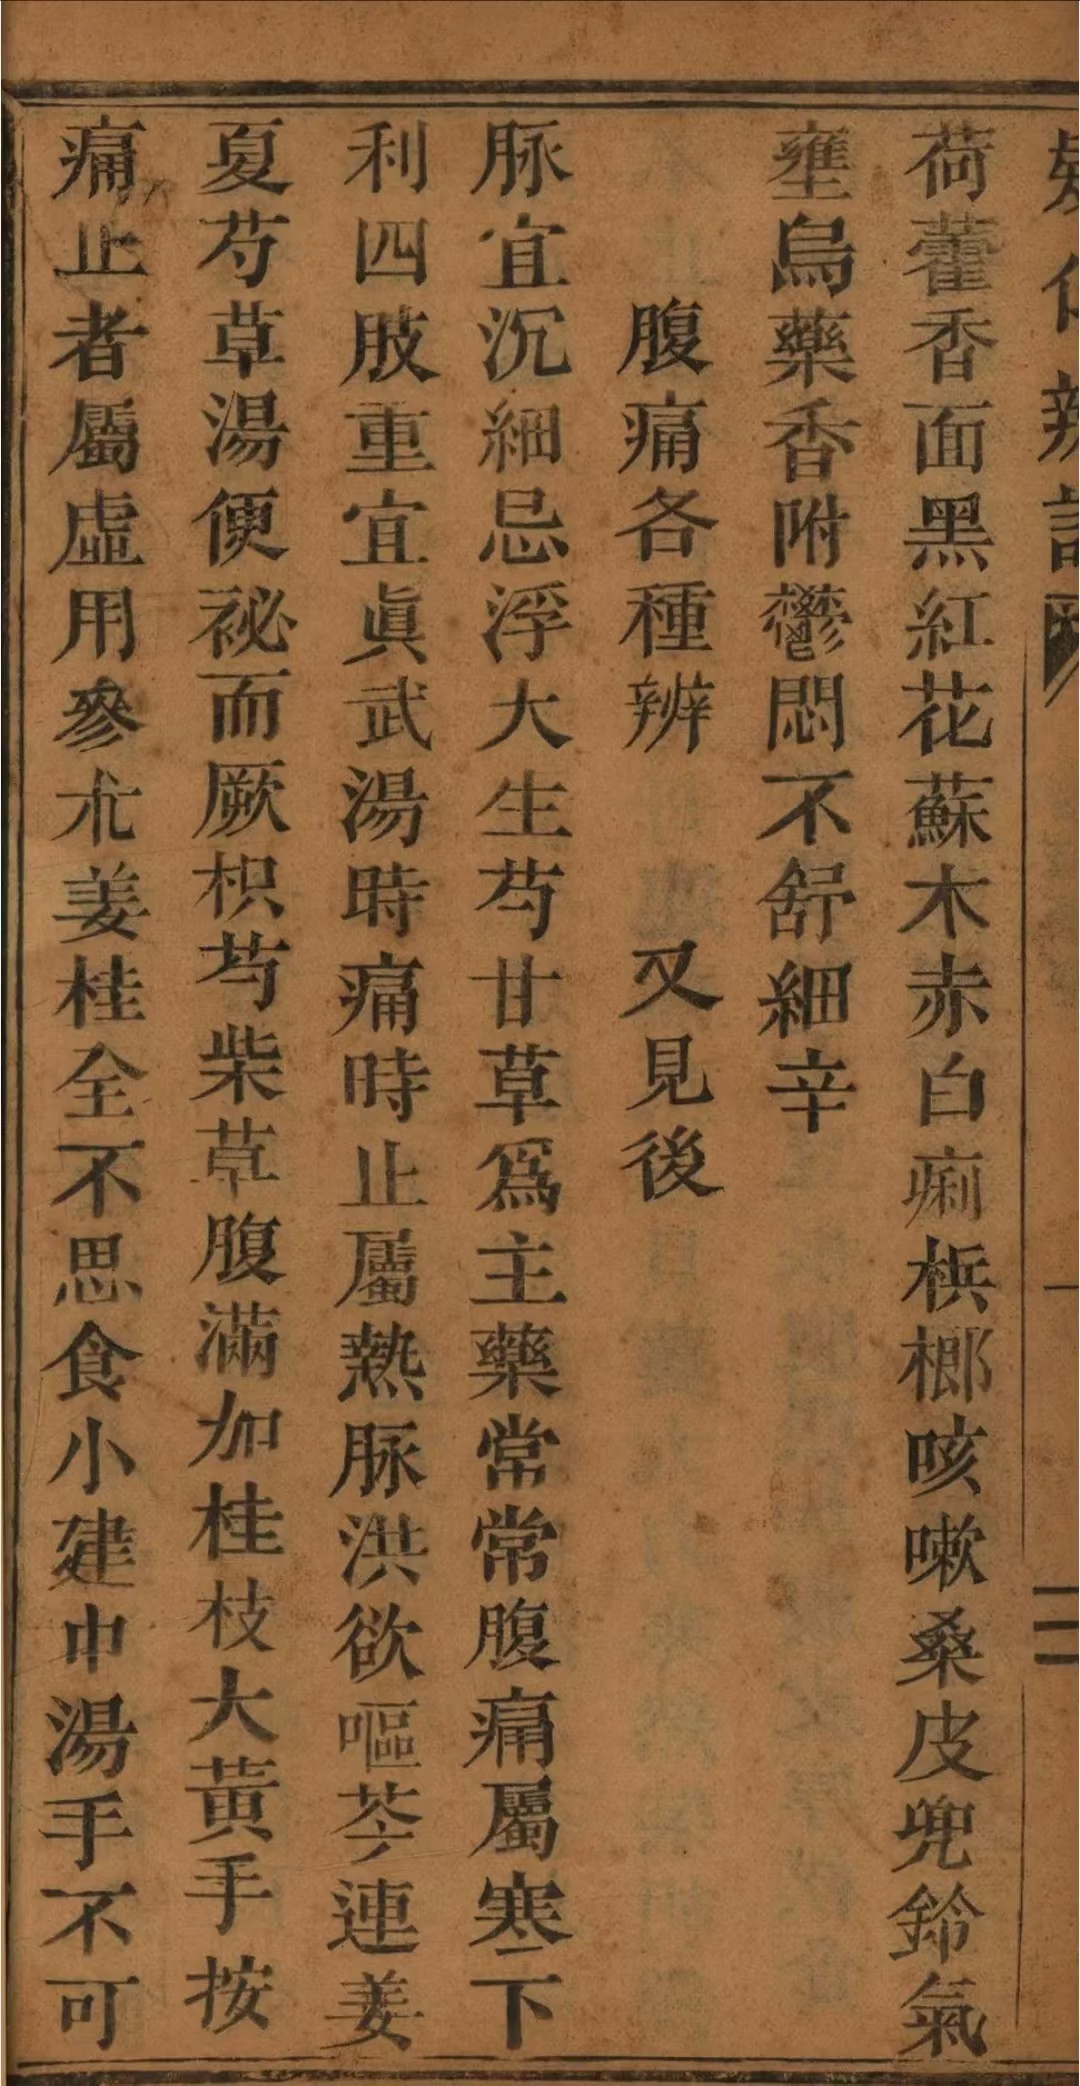 荷藿香面黑紅花蘇木赤白痢梹榔咳嗽桑皮兜鈴氣
壅烏藥香附鬱悶不舒細辛
腹痛各種辨 又見後
脉宜沉細忌浮大生芍甘草為主藥常常腹痛屬寒下
利四肢重宜眞武湯時痛時止屬熱脉洪欲嘔芩連姜
夏芍草湯便祕而厥枳芍柴草腹滿加桂枝大黃手按
痛止者屬虛用參朮姜桂全不思食小建中湯手不可